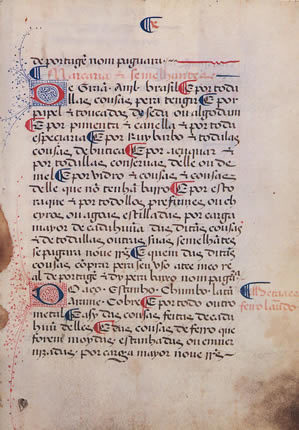 de portagẽ nom paguara.
Marcaria & semelhantes
De Grãa. Anil. brasil & por todallas cousas pera tengir & por
papel & toucados de seda ou algodom
& por pimenta & canella & por toda
especearia & por Ruybarbo & todallas
cousas de botica & por açuquar &
por todallas conseruas delle ou de
mel & por vidro & cousas
delle que nõ tenhã barro & por esto
raque & por todollos prefumes ou chey
ros ou agoas estilladas por carga
mayor de cada huũa das ditas cousas
& de todallas outras suas semelhantes
se pagara noue rs̃ E quem das ditas
cousas cõprar pera seu vso
de portagẽ & dy pera baixo nom
O aço. Estanho. Chumbo. latã
Arame. Cobre & por todo outro
metal & assy das cousas feitas de cada
huũ delles E das cousas de ferro que
forem moydas estanhadas ou enuer
nizadas. por carga mayor noue rs̃
ferro laurado